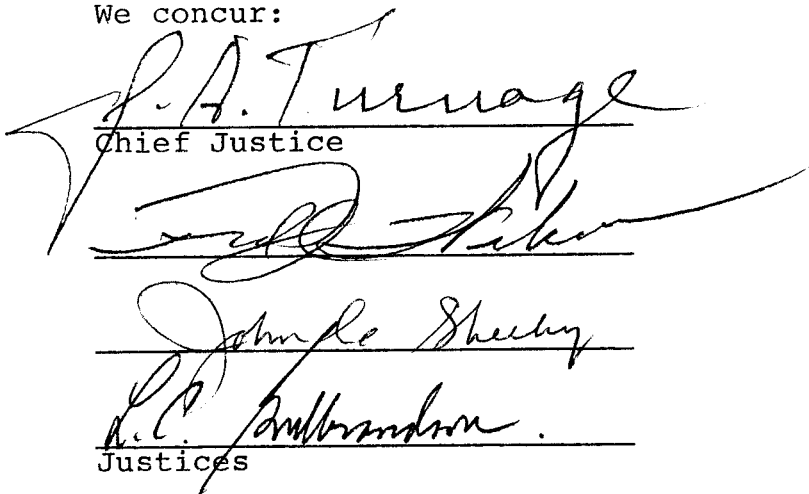 We concur:
J. A. Turnage
Chief Justice
John C. Sheehy
L. C. Gulbrandson.
Justices